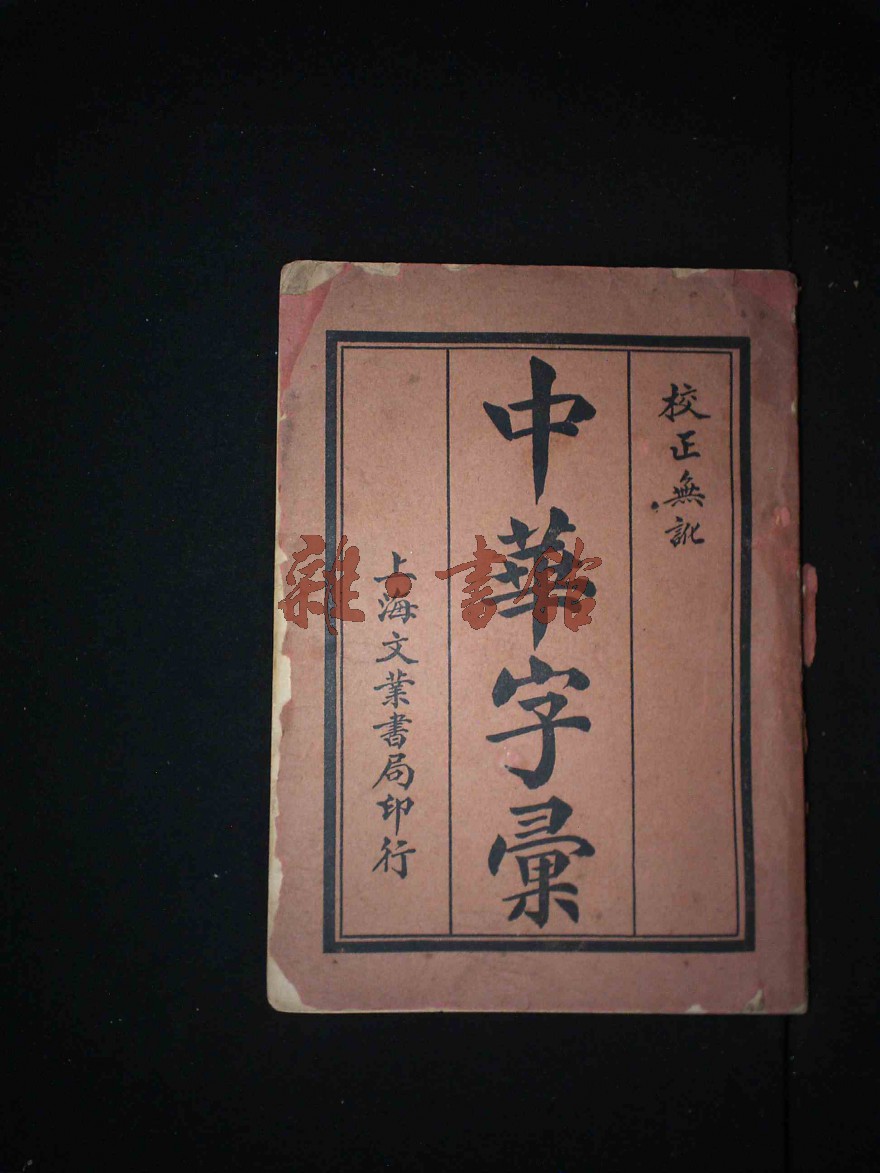 校正無訛
中華字彙
上海文業書局印行
雜·書館